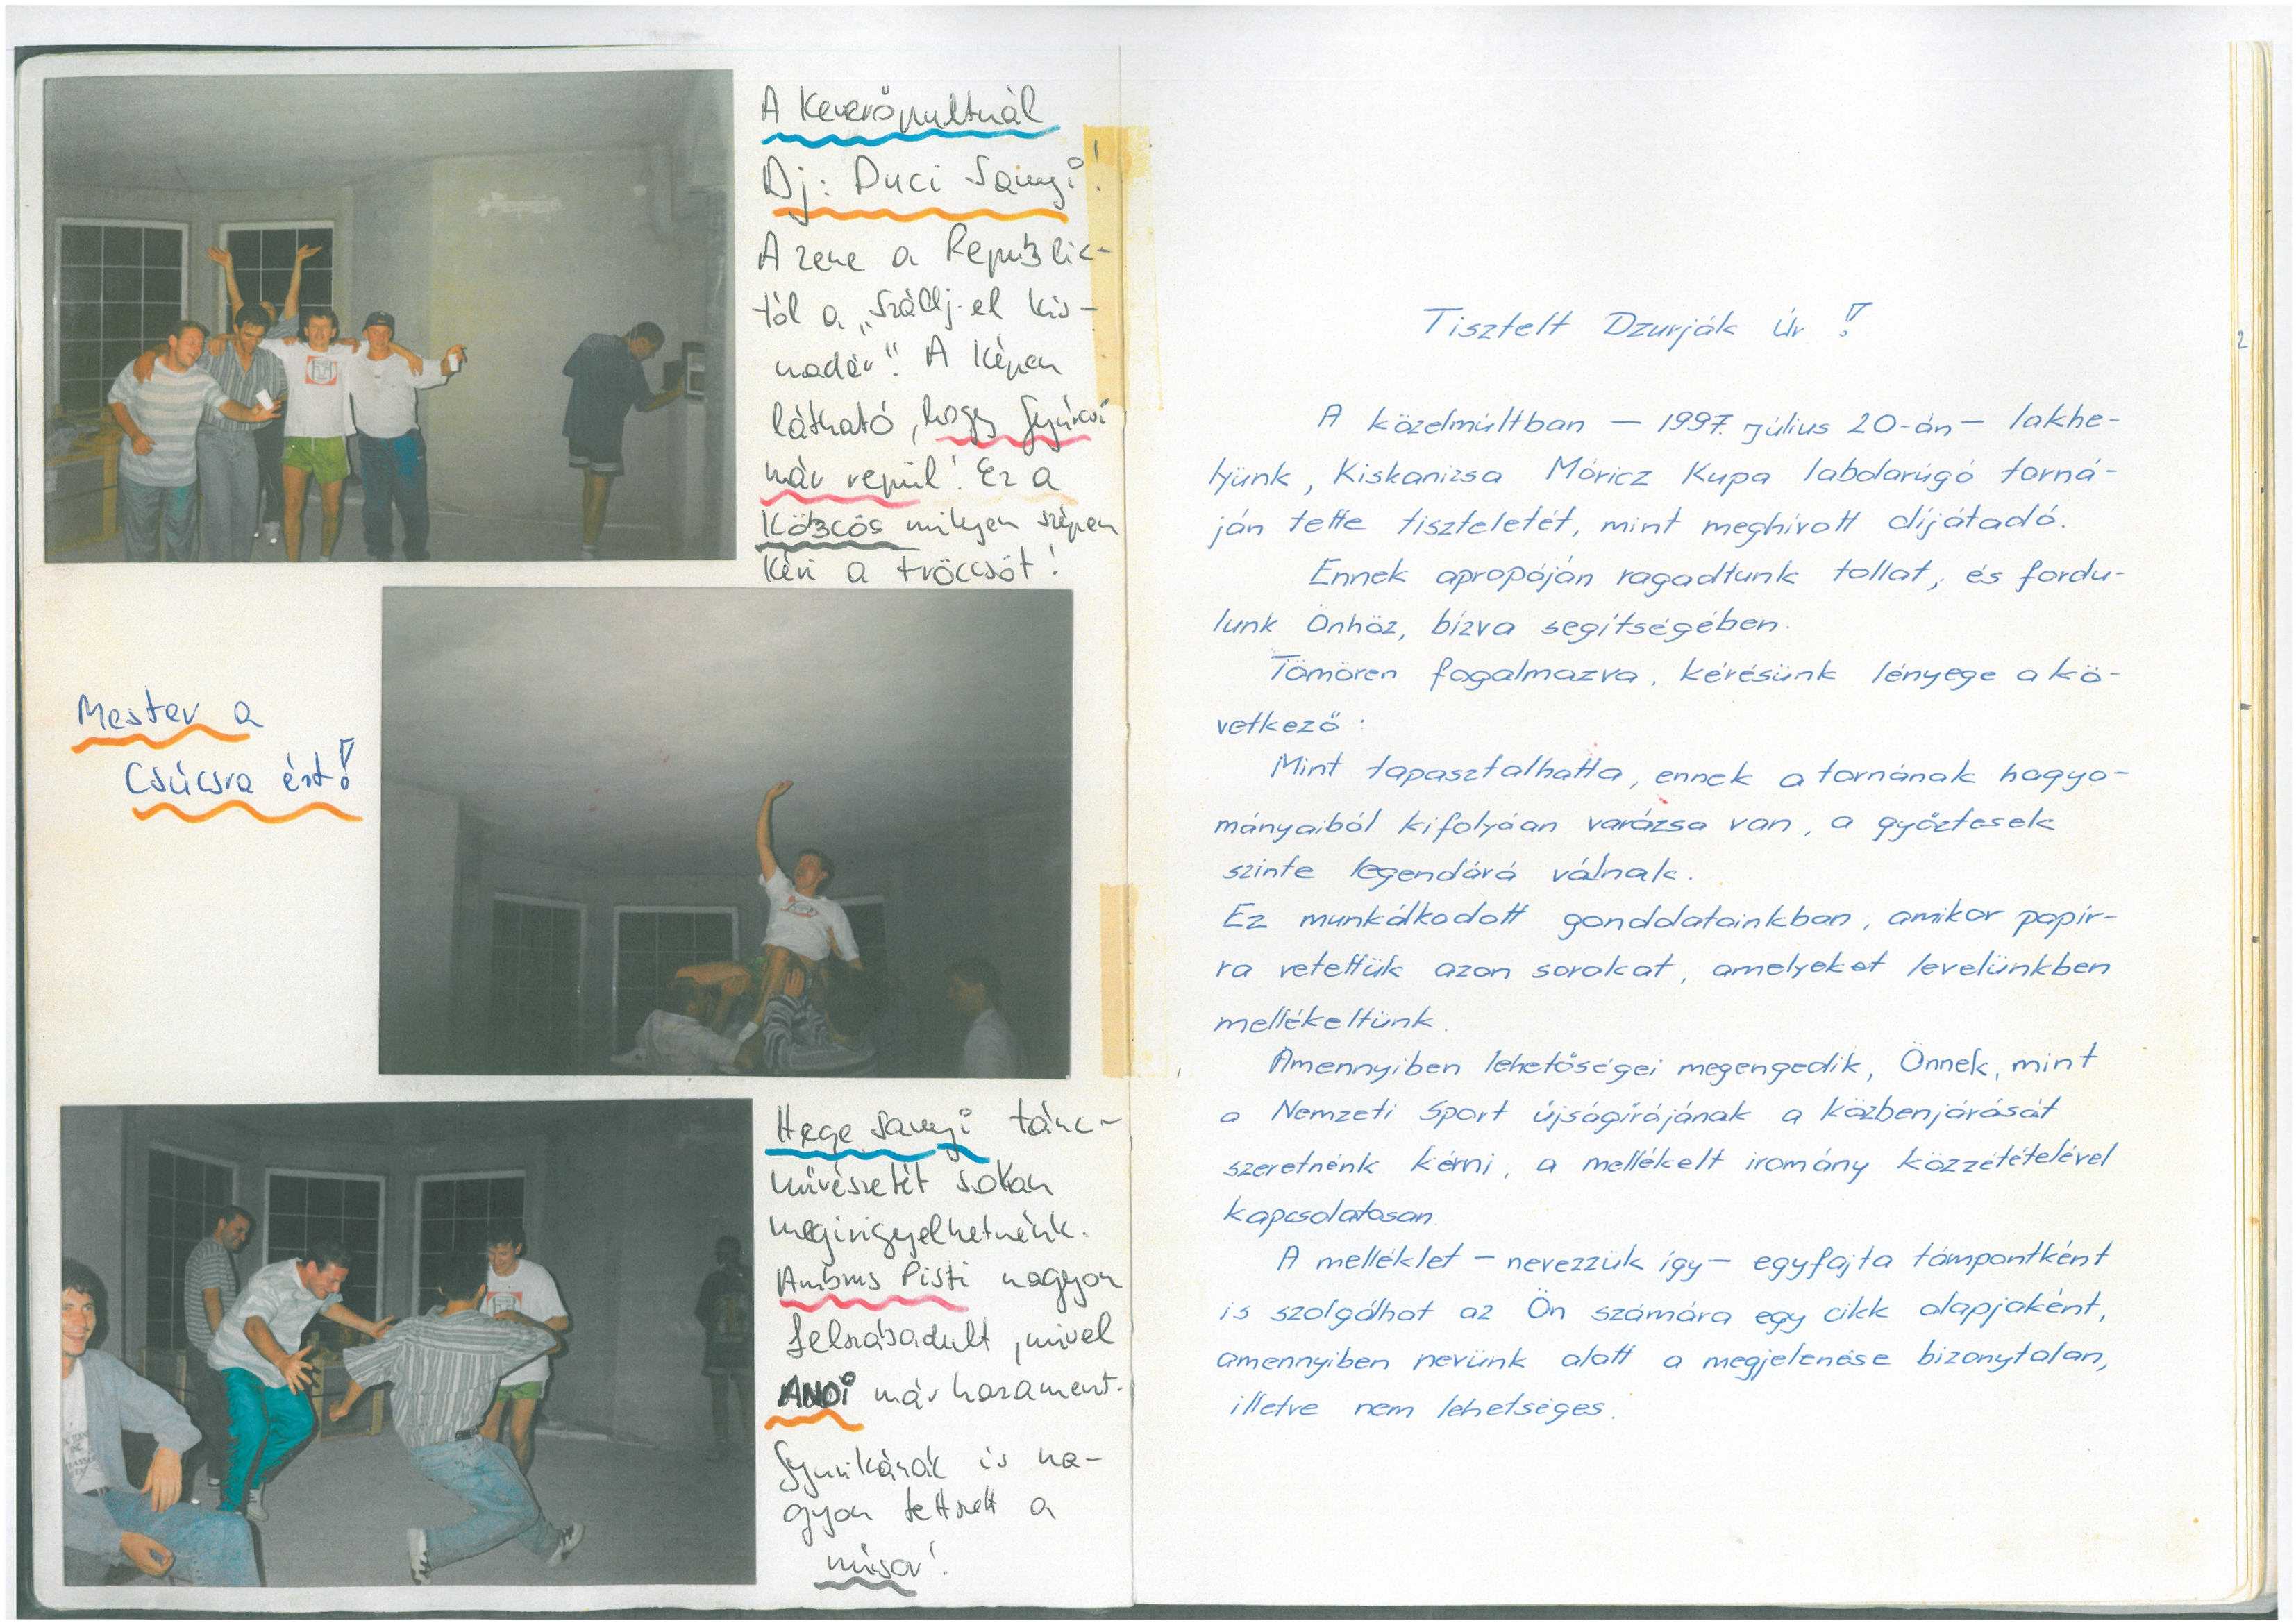 A Keverőpultnál
Dj: Duci Sanyi!
A zene a Republic-
tól a „Szállj el kis-
madár". A képen
látható, hogy Gyúrcsi
már repül! Ez a
Köbcös milyen szépen
kéri a fröccsöt!
Mester a
Csúcsra ért!
Hege Sanyi tánc-
művészetét sokan
megirigyelhetnénk.
Ambrus Pisti nagyon
felszabadult, mivel
ANDI már hazament.
Gyurikának is na-
gyon tetszett a
műsor!
Tisztelt Dzurják Úr!
A közelmúltban – 1997. július 20-án – lakhe-
lyünk, Kiskanizsa Móricz Kupa labdarúgó torná-
ján tette tiszteletét, mint meghívott díjátadó.
Ennek apropóján ragadtunk tollat, és fordu-
lunk Önhöz, bízva segítségében.
Tömören fogalmazva, kérésünk lényege a kö-
vetkező:
Mint tapasztalhatta, ennek a tornának hagyo-
mányaiból kifolyóan varázsa van, a győztesek
szinte legendává válnak.
Ez munkálkodott gondolatainkban, amikor papír-
ra vetettük azon sorokat, amelyeket levelünkben
mellékeltünk.
Amennyiben lehetőségei megengedik, Önnek, mint
a Nemzeti Sport újságírójának a közbenjárását
szeretnénk kérni, a mellékelt iromány közzétételével
kapcsolatosan.
A melléklet – nevezzük így – egyfajta támpontként
is szolgálhat az Ön számára egy cikk alapjaként,
amennyiben nevünk alatt a megjelenése bizonytalan,
illetve nem lehetséges.
2